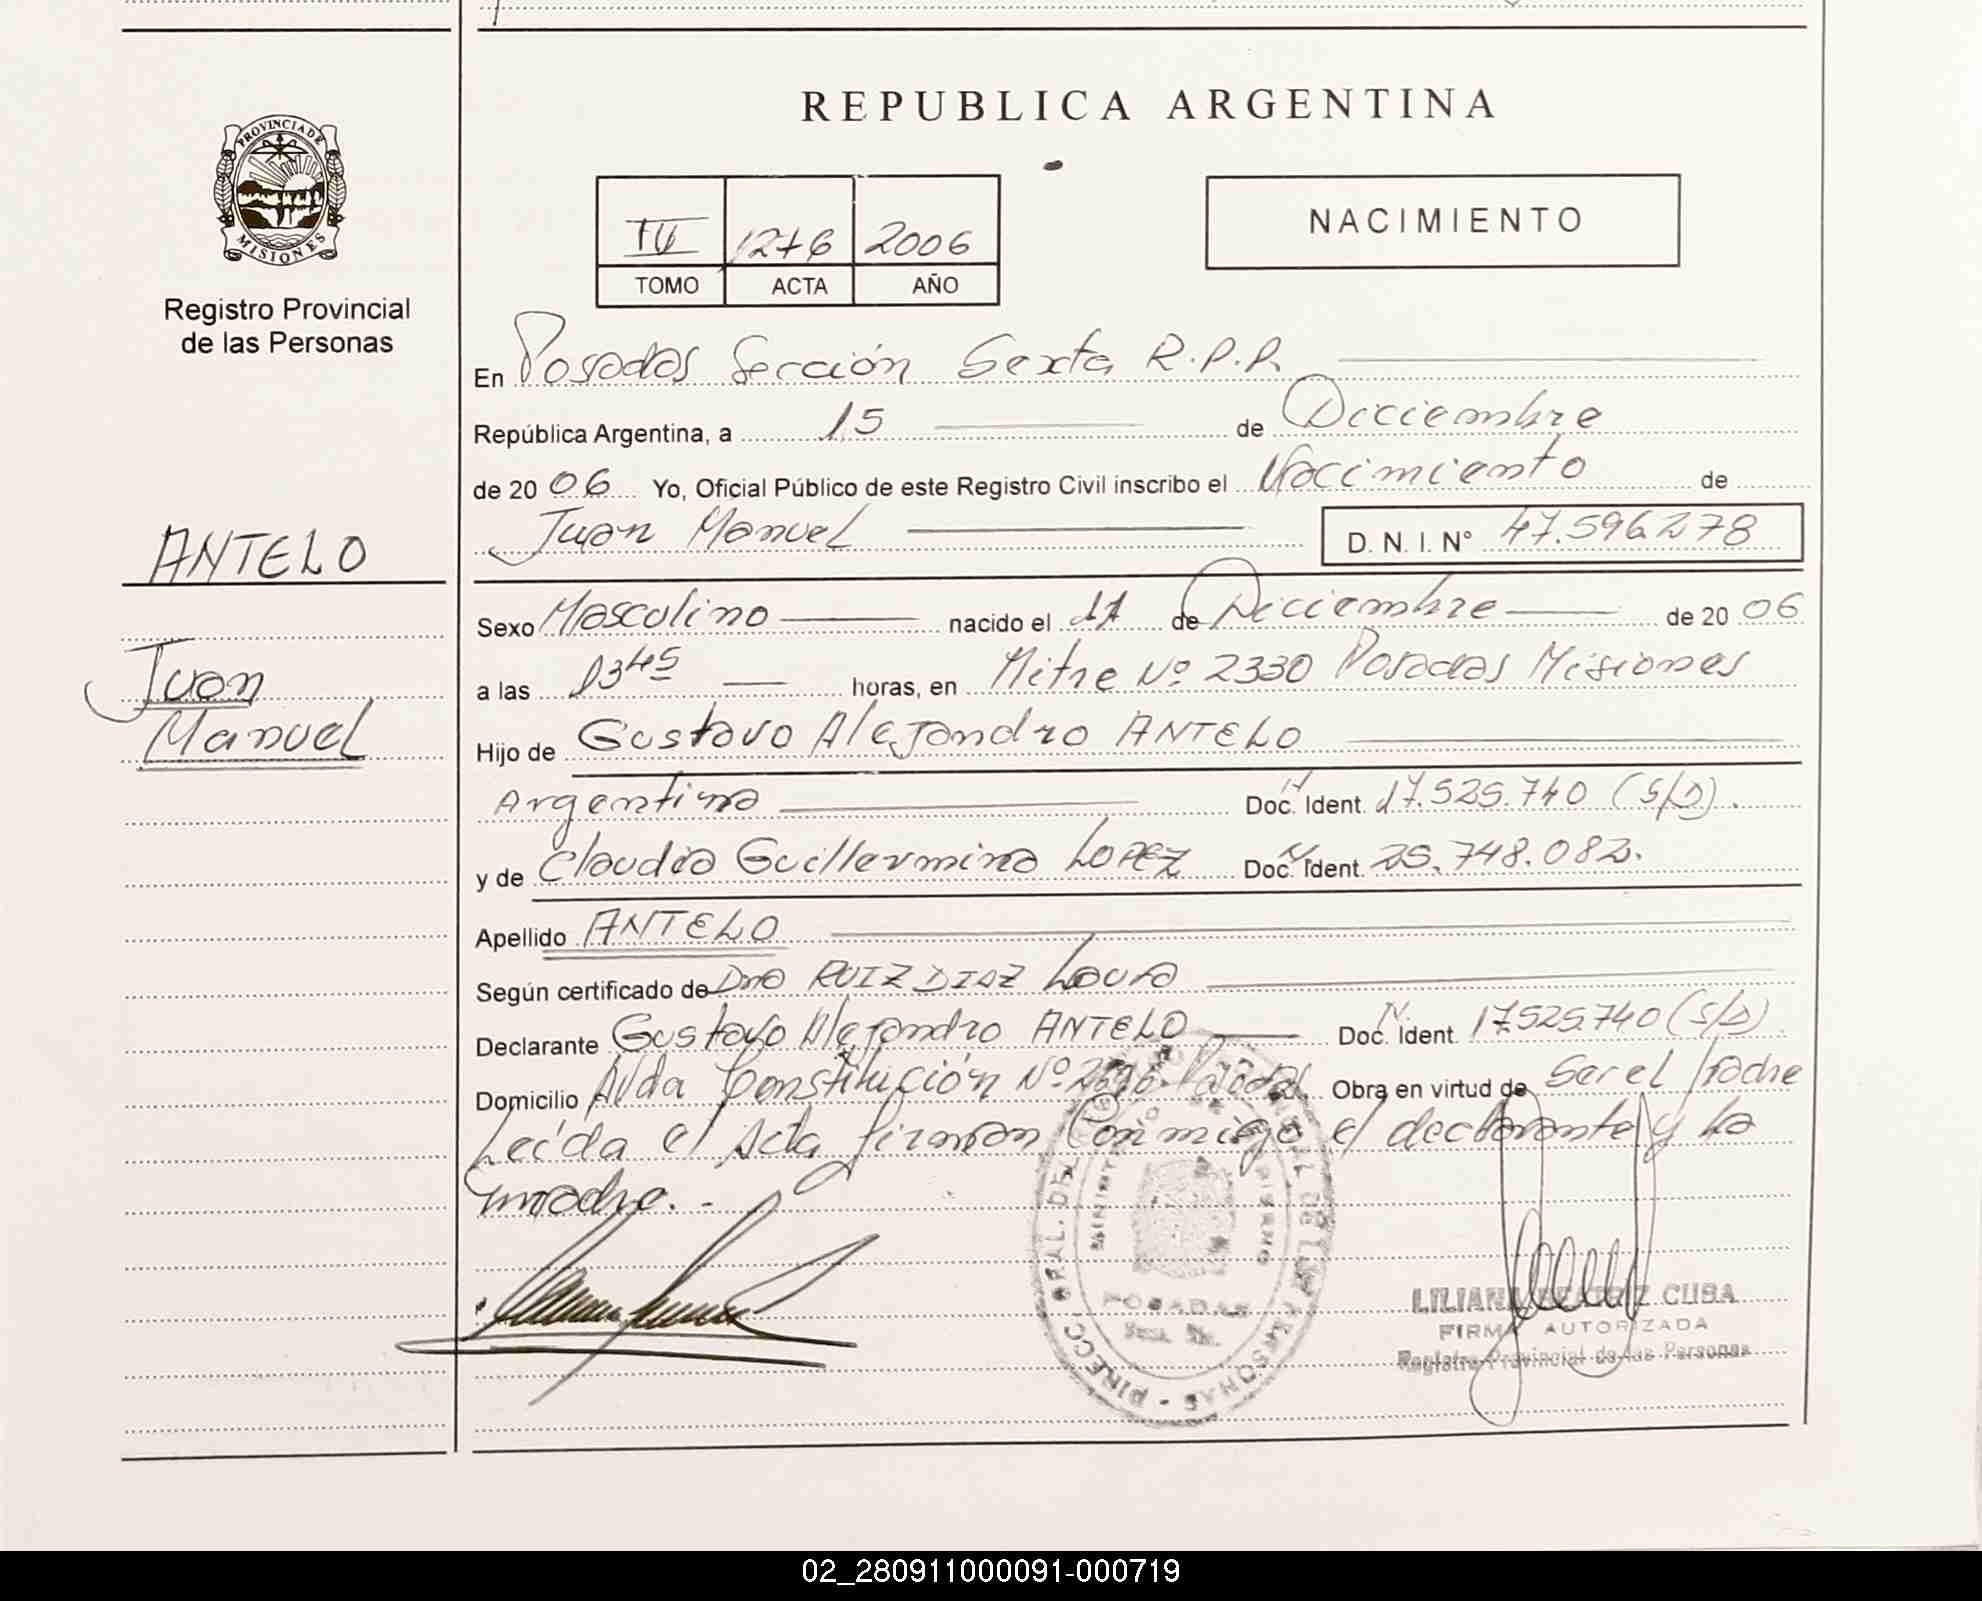 REPUBLICA ARGENTINA
PROVINCIA DE
MISIONES
Registro Provincial
de las Personas
NACIMIENTO
IV 1276 2006
TOMO ACTA AÑO
En Posadas Sección Sexta R.P.P.
República Argentina, a 15 de Diciembre
de 2006 Yo, Oficial Público de este Registro Civil inscribo el Nacimiento de
Juan Manuel D. N. I. N° 47.596278
ANTELO
Juan
Manuel
Sexo Masculino nacido el 11 de Diciembre de 2006
a las 1345 horas, en Mitre Nº 2330 Posadas Misiones
Hijo de Gustavo Alejandro ANTELO
Argentina Doc. Ident. 17.525.740 (S/D).
y de Claudia Guillermina LOPEZ Doc. Ident. 25.748.082.
Apellido ANTELO
Según certificado de Dra RUIZ DIAZ Laura
Declarante Gustavo Alejandro ANTELO Doc. Ident. 17.525.740 (S/D)
Domicilio Avda Constitución Nº Posadas Obra en virtud de Ser el Padre
Leída el Acta firman Conmigo el declarante y la
madre.-
POSADAS
LILIANA BEATRIZ CUBA
FIRMA AUTORIZADA
Registro Provincial de las Personas
02_280911000091-000719